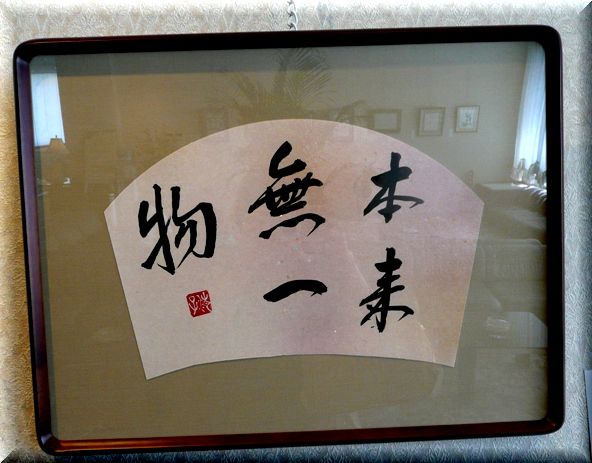 本来
無一
物